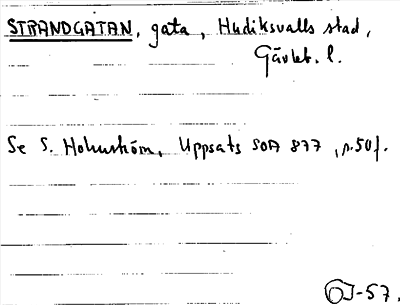 STRANDGATAN, gata, Hudiksvalls stad,
Gävleb. l.
Se S. Holmström, Uppsats SOA 877, s. 50 f.
OJ-57.